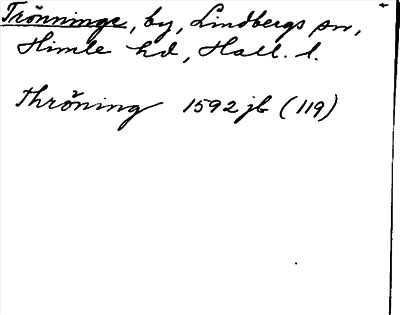 Trönninge, by, Lindbergs sn,
Himle hd, Hall. l.
Thröning 1592 jb (119)